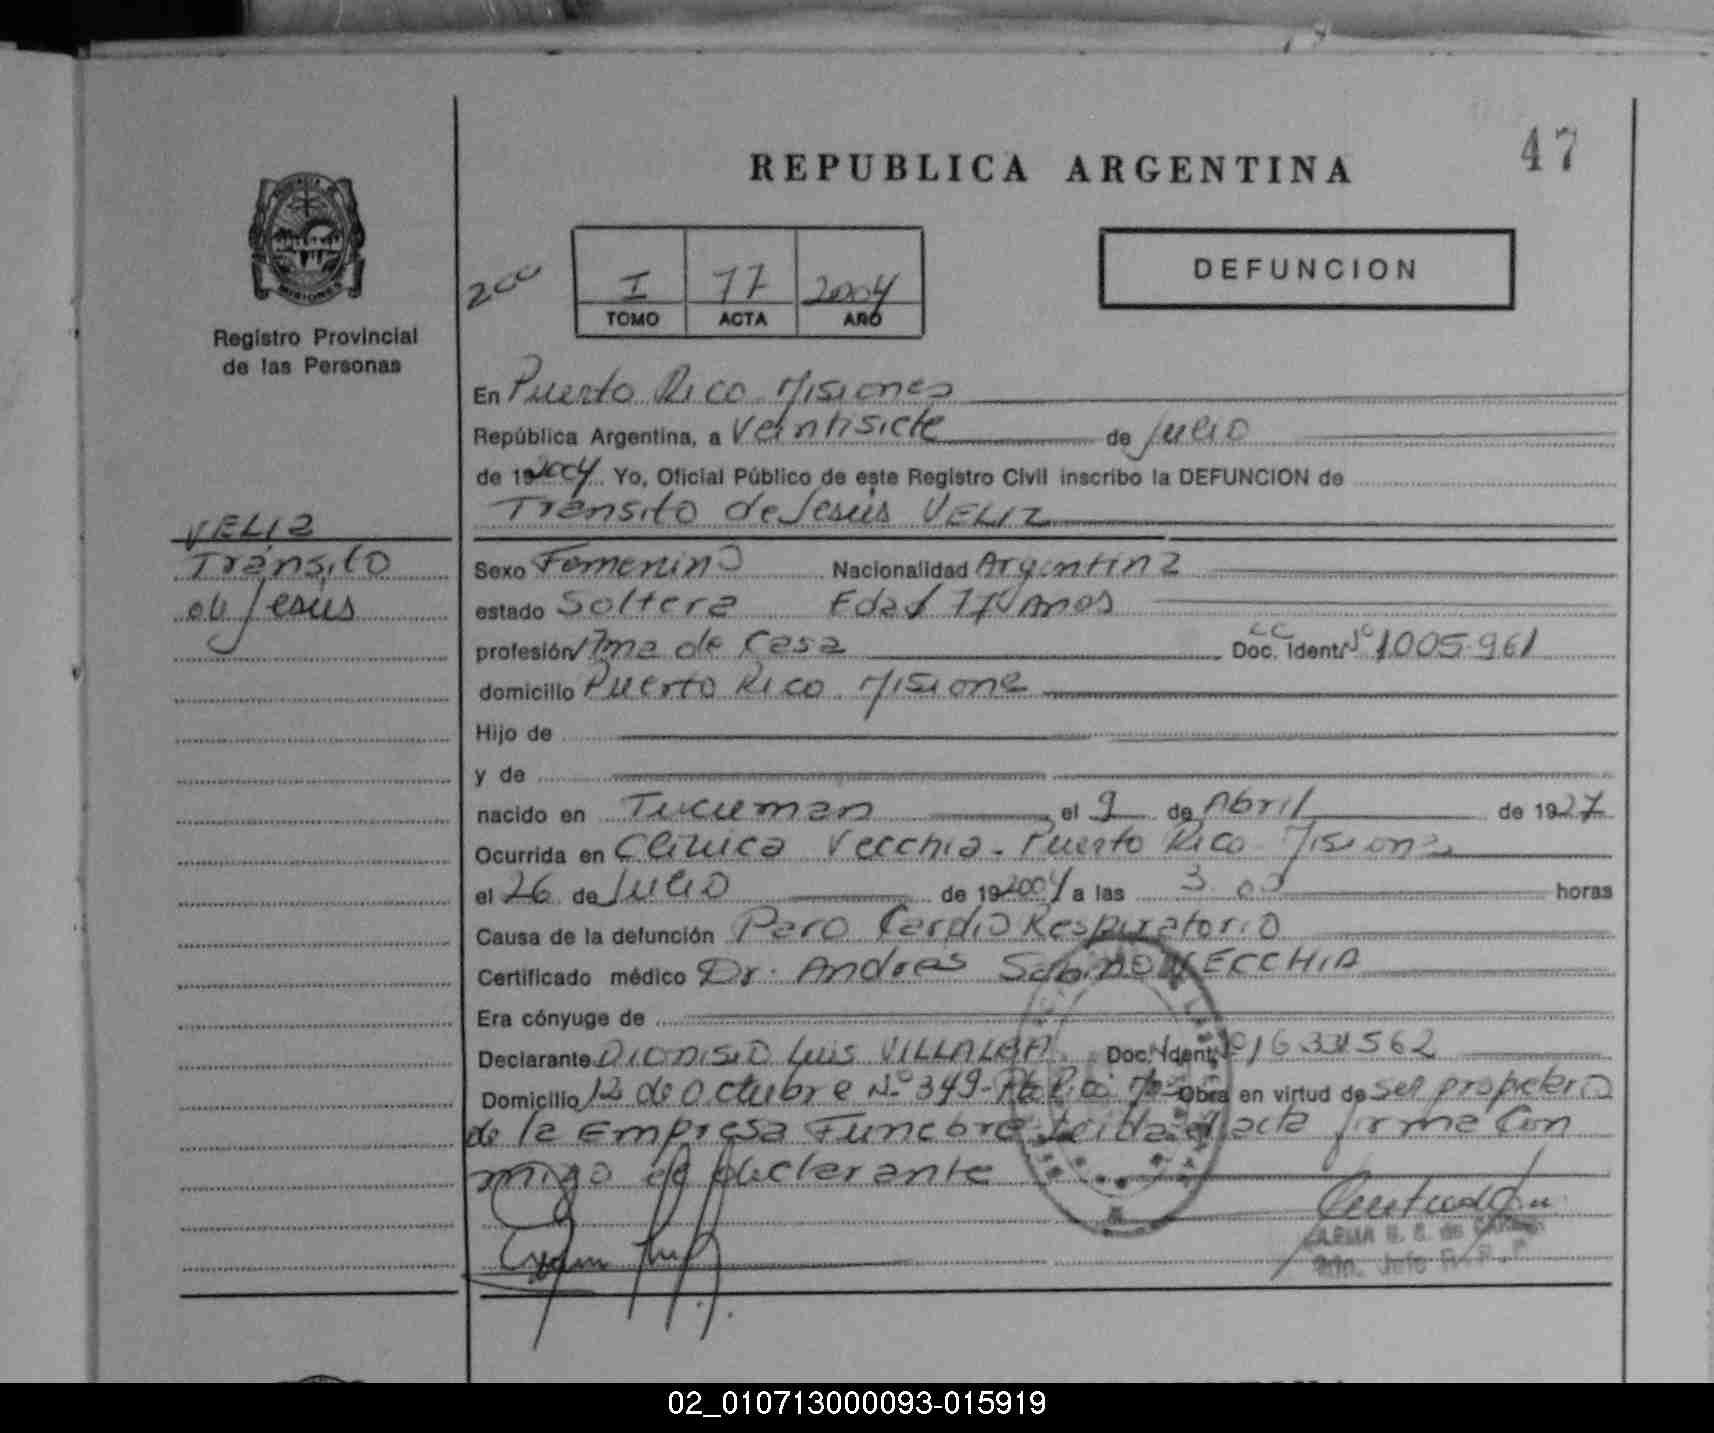 47
REPUBLICA ARGENTINA
DEFUNCION
I 77 2004
TOMO ACTA AÑO
PROVINCIA DE
MISIONES
Registro Provincial
de las Personas
VELIZ
Tránsito
de Jesús
En Puerto Rico Misiones
República Argentina, a Veintisiete de Julio
de 192004 Yo, Oficial Público de este Registro Civil inscribo la DEFUNCION de
Transito de Jesús VELIZ
Sexo Femenino Nacionalidad Argentina
estado Soltera Edad 77 Años
profesión Ama de Casa Doc. Ident. Nº 1.005.961
domicilio Puerto Rico Misione
Hijo de
y de
nacido en Tucuman el 9 de Abril de 1927
Ocurrida en Clinica Vecchia - Puerto Rico Misiones
el 26 de Julio de 192004 a las 3.00 horas
Causa de la defunción Paro Cardio Respiratorio
Certificado médico Dr. Andres Sabino VECCHIA
Era cónyuge de
Declarante Dionisio Luis VILLALBA Doc. Ident. Nº 16331562
Domicilio 12 de Octubre Nº 349 - Pto Rico Obra en virtud de ser propietario
de la Empresa Funebre Leida el acta firma Con
migo el declarante
02_010713000093-015919